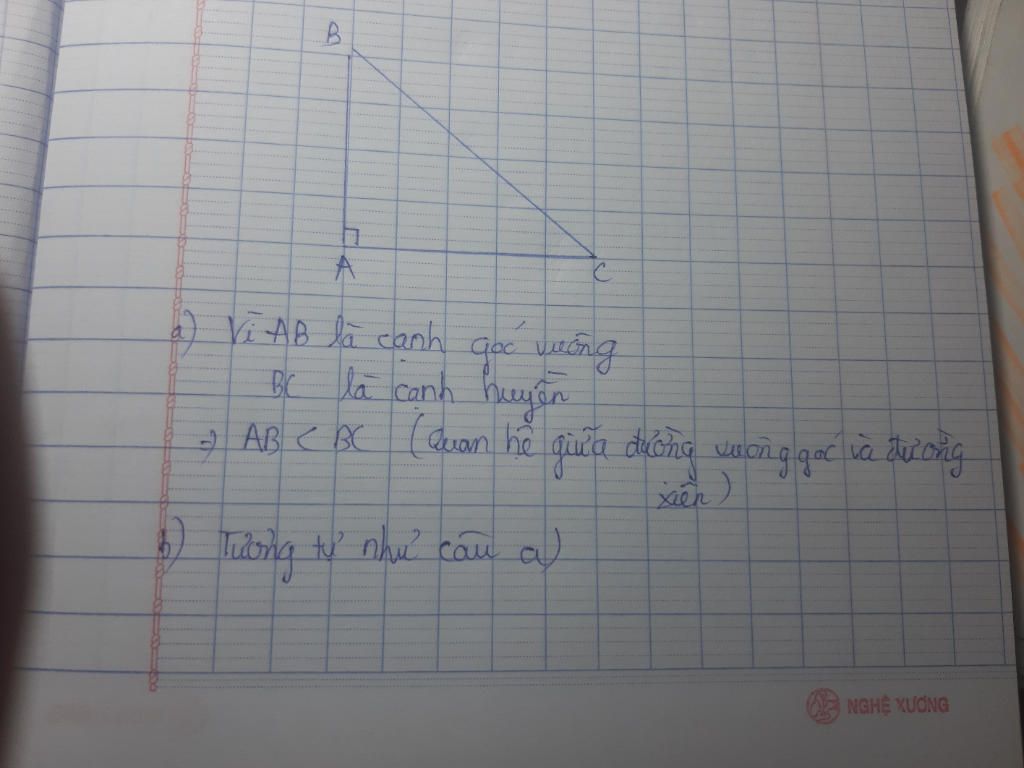 B
A
C
a) Vì AB là cạnh góc vuông
BC là cạnh huyền
=> AB < BC (Quan hệ giữa đường vuông góc và đường
xiên)
b) Tương tự như câu a)
NGHỆ XƯƠNG